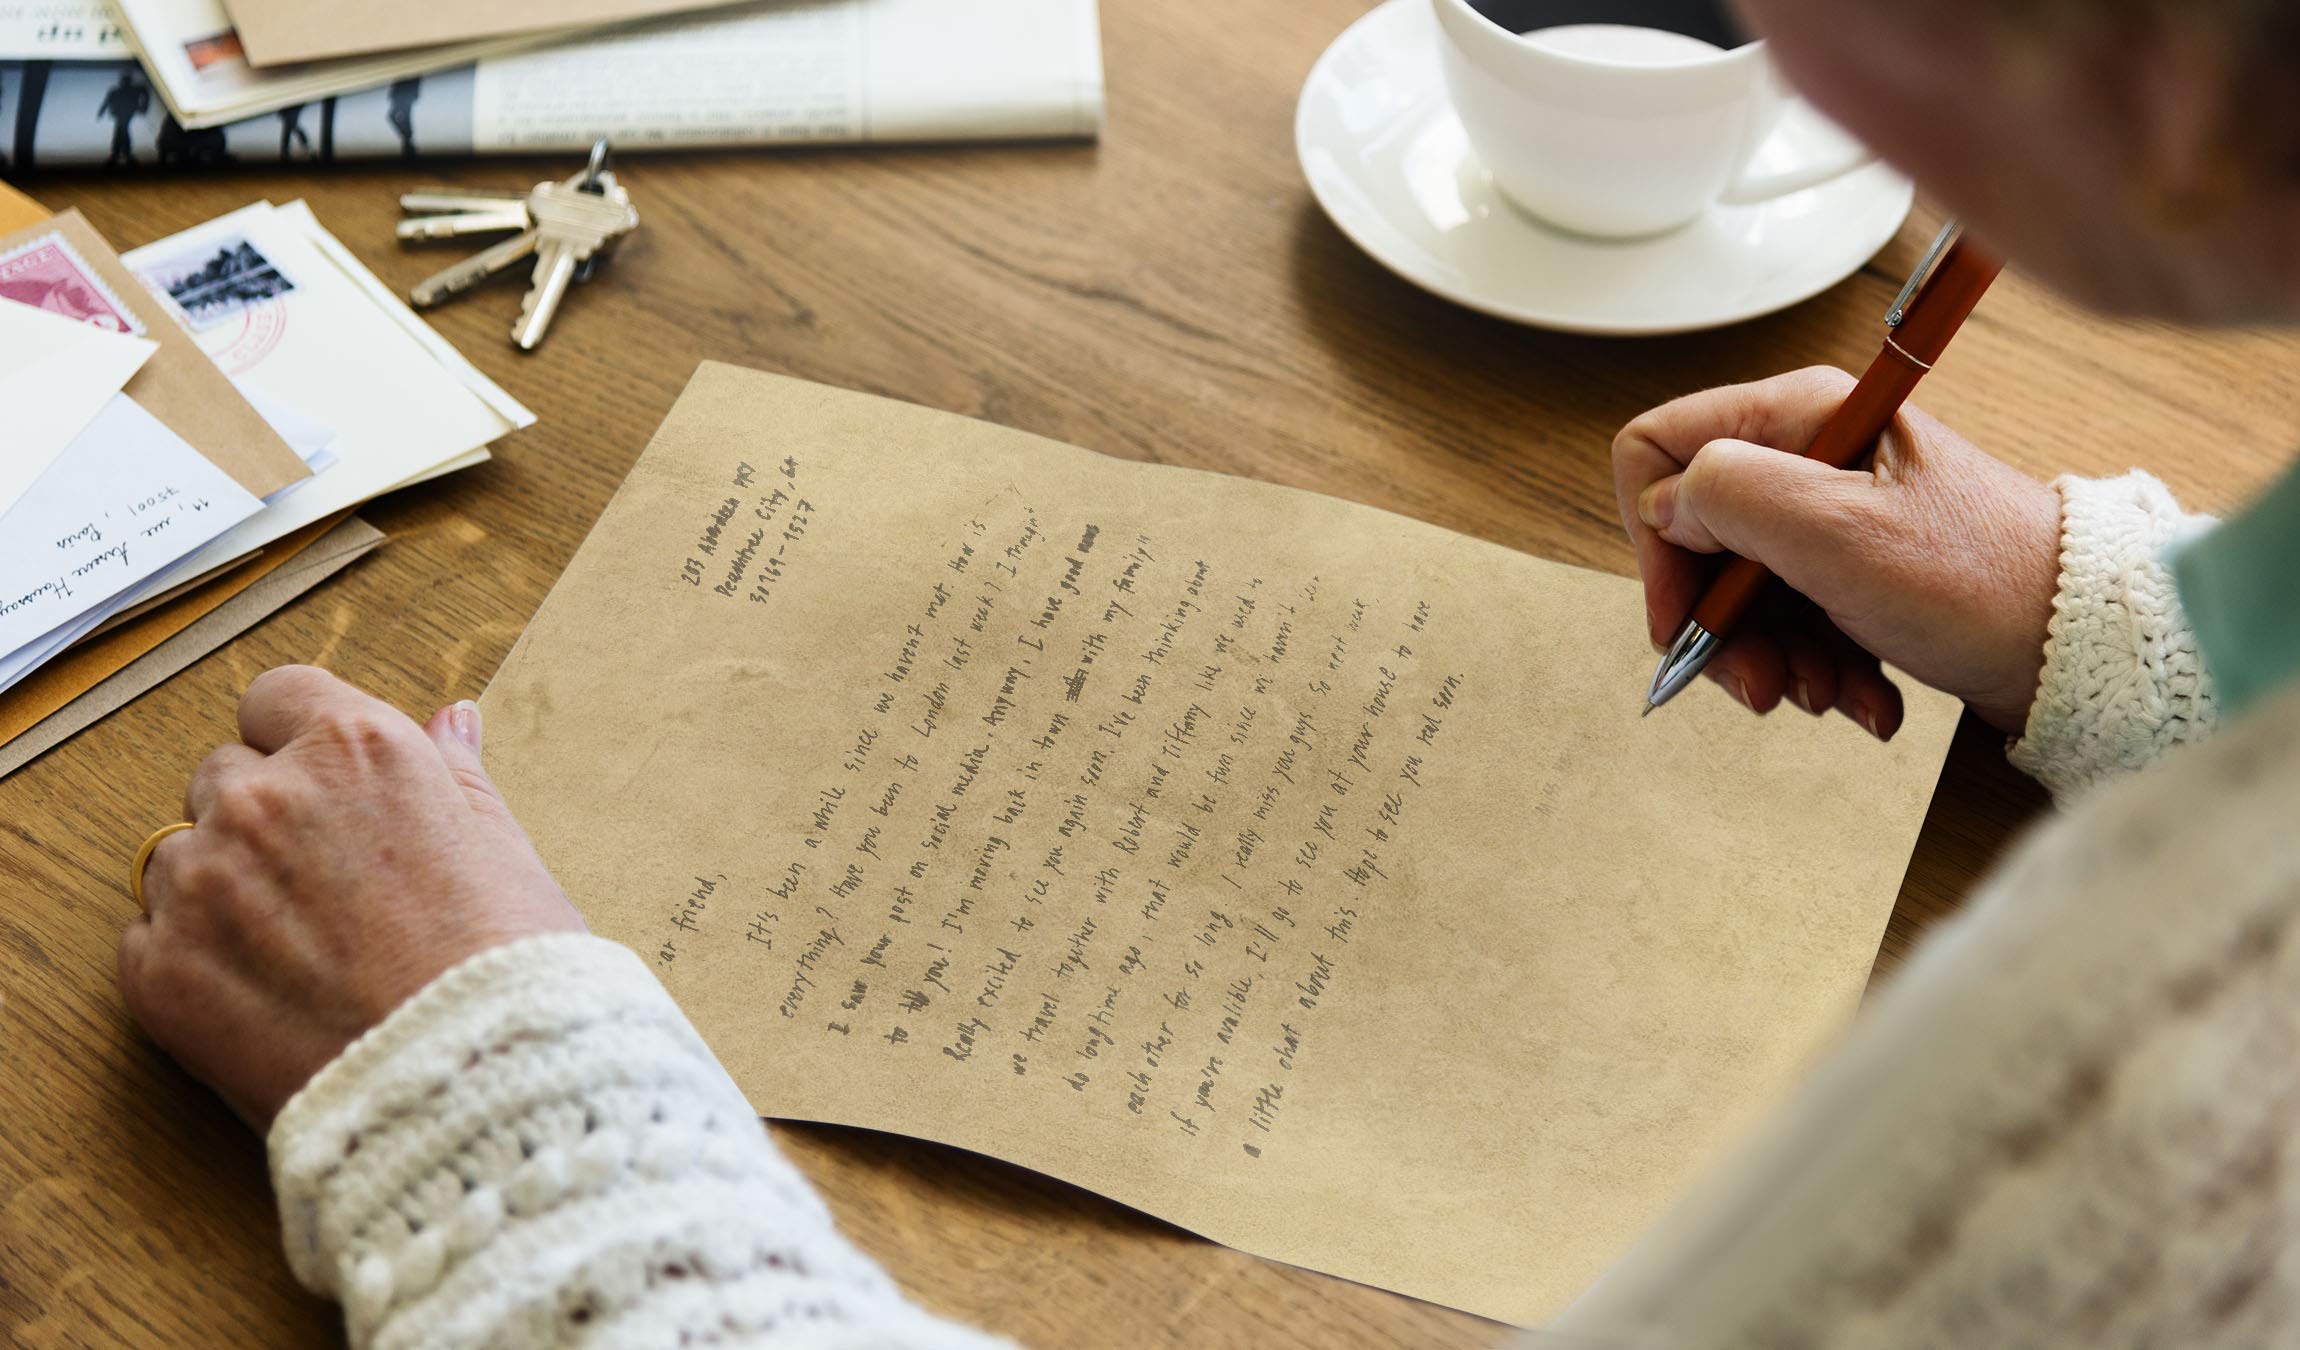 203 Aberdeen Way
Peachtree City, GA
30269-1527
ear friend,
It's been a while since we haven't met. How is
everything? Have you been to London last week? I thought
I saw your post on social media. Anyway, I have good news
to tell you! I'm moving back in town with my family!!
Really excited to see you again soon. I've been thinking about
we travel together with Robert and Tiffany like we used to
do long time ago, that would be fun since we haven't seen
each other for so long. I really miss you guys. So next week.
If you're availible, I'll go to see you at your house to have
a little chat about this. Hope to see you real soon.
Miss
11, rue
75001, Paris